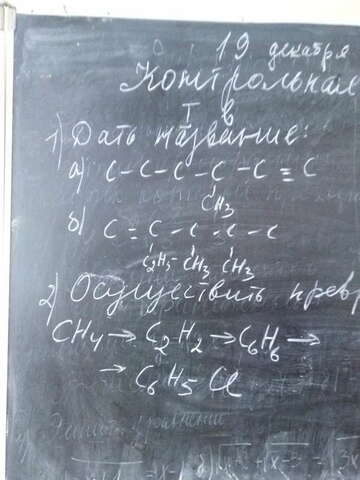 19 декабря
Контрольная
I в
1) Дать название:
а) C - C - C - C - C ≡ C
CH3
б) C = C - C - C - C
C2H5 CH3 CH3
2) Осуществить превр
CH4 → C2H2 → C6H6 →
→ C6H5Cl
уравнение